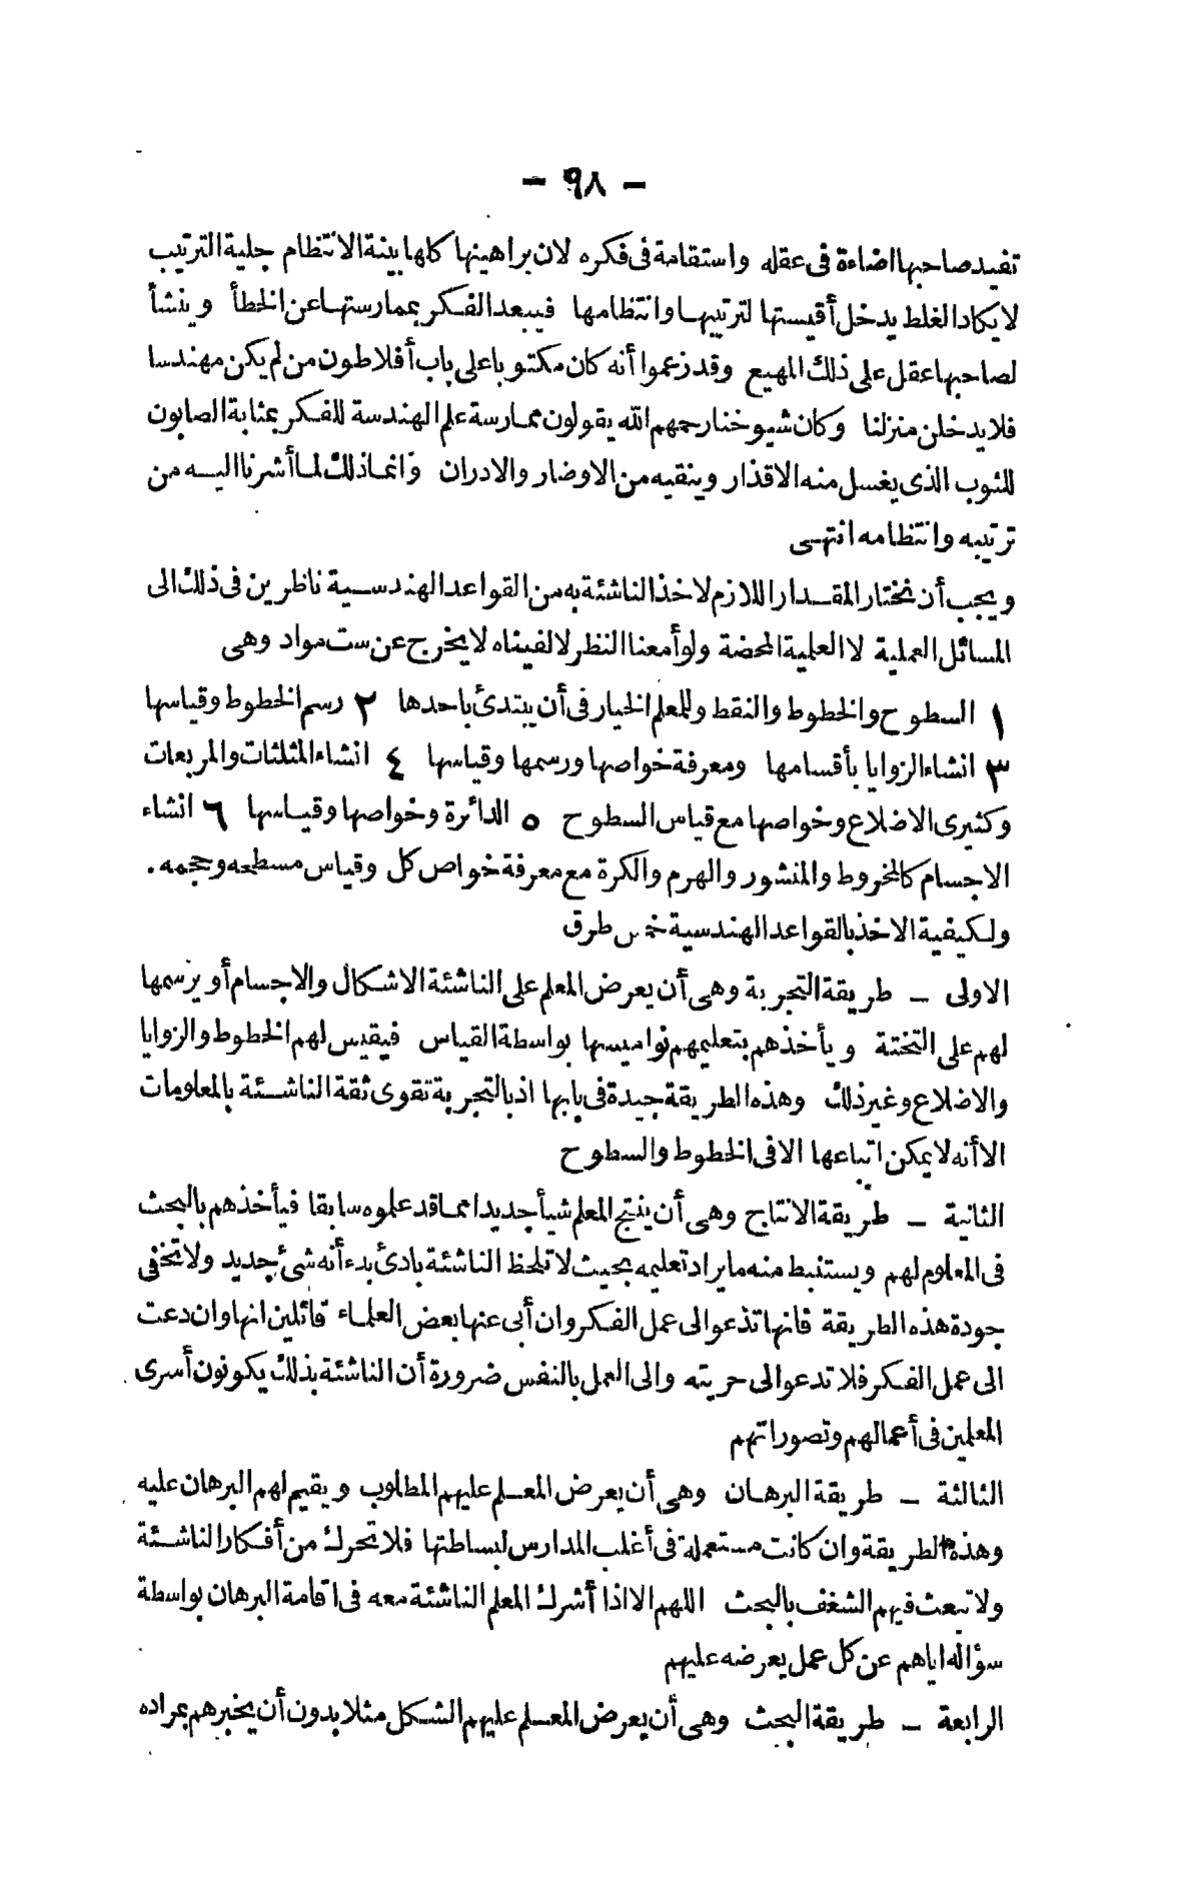 — ٩٨ —
تفيد صاحبها اضاءة فى عقله واستقامة فى فكره لان براهينها كلها بينة الانتظام جلية الترتيب
لا يكاد الغلط يدخل أقيستها لترتيبها وانتظامها فيبعد الفكر بممارستها عن الخطأ وينشأ
لصاحبها عقل على ذلك المهيع وقد زعموا أنه كان مكتوبا على باب أفلاطون من لم يكن مهندسا
فلا يدخلن منزلنا وكان شيوخنا رحمهم الله يقولون ممارسة علم الهندسة للفكر بمثابة الصابون
للثوب الذى يغسل منه الاقذار وينقيه من الاوضار والادران وانما ذلك لما أشرنا اليه من
ترتيبه وانتظامه انتهى
ويجب أن نختار المقدار اللازم لاخذ الناشئة به من القواعد الهندسية ناظرين فى ذلك الى
المسائل العملية لا العلمية المحضة ولو أمعنا النظر لالفيناه لا يخرج عن ست مواد وهى
١ السطوح والخطوط والنقط وللمعلم الخيار فى أن يبتدئ باحدها ٢ رسم الخطوط وقياسها
٣ انشاء الزوايا بأقسامها ومعرفة خواصها ورسمها وقياسها ٤ انشاء المثلثات والمربعات
وكثيرى الاضلاع وخواصها مع قياس السطوح ٥ الدائرة وخواصها وقياسها ٦ انشاء
الاجسام كالمخروط والمنشور والهرم والكرة مع معرفة خواص كل وقياس مسطحه وحجمه .
ولكيفية الاخذ بالقواعد الهندسية خمس طرق
الاولى — طريقة التجربة وهى أن يعرض المعلم على الناشئة الاشكال والاجسام أو يرسمها
لهم على التختة ويأخذهم بتعليمهم نواميسها بواسطة القياس فيقيس لهم الخطوط والزوايا
والاضلاع وغير ذلك وهذه الطريقة جيدة فى بابها اذ بالتجربة تقوى ثقة الناشئة بالمعلومات
الا أنه لا يمكن اتباعها الا فى الخطوط والسطوح
الثانية — طريقة الانتاج وهى أن ينتج المعلم شيأ جديدا مما قد علموه سابقا فيأخذهم بالبحث
فى المعلوم لهم ويستنبط منه ما يراد تعليمه بحيث لا تلحظ الناشئة بادئ بدء أنه شئ جديد ولا تخفى
جودة هذه الطريقة فانها تدعو الى عمل الفكر وان أبى عنها بعض العلماء قائلين انها وان دعت
الى عمل الفكر فلا تدعو الى حريته والى العمل بالنفس ضرورة أن الناشئة بذلك يكونون أسرى
المعلمين فى أعمالهم وتصوراتهم
الثالثة — طريقة البرهان وهى أن يعرض المعلم عليهم المطلوب ويقيم لهم البرهان عليه
وهذه الطريقة وان كانت مستعملة فى أغلب المدارس لبساطتها فلا تحرك من أفكار الناشئة
ولا تبعث فيهم الشغف بالبحث اللهم الا اذا أشرك المعلم الناشئة معه فى اقامة البرهان بواسطة
سؤاله اياهم عن كل عمل يعرضه عليهم
الرابعة — طريقة البحث وهى أن يعرض المعلم عليهم الشكل مثلا بدون أن يخبرهم بمراده